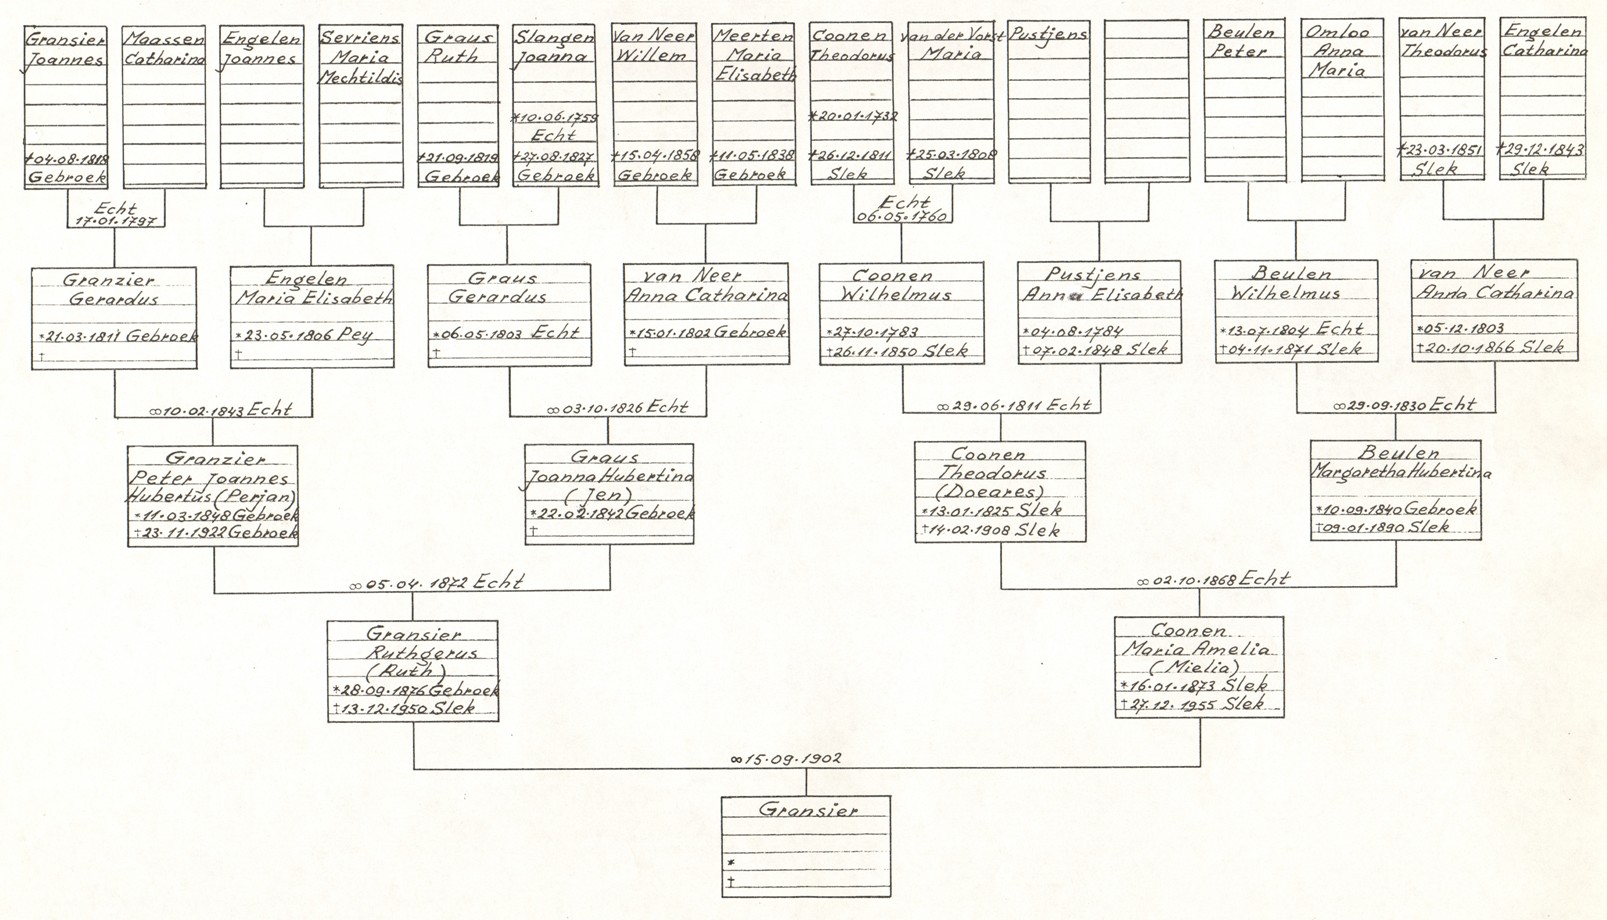 Gransier
Joannes
†04.08.1818
Gebroek
Maassen
Catharina
Engelen
Joannes
Sevriens
Maria
Mechtildis
Graus
Ruth
†21.09.1819
Gebroek
Slangen
Joanna
*10.06.1759
Echt
†27.08.1827
Gebroek
Van Neer
Willem
†15.04.1858
Gebroek
Meerten
Maria
Elisabeth
†11.05.1838
Gebroek
Coonen
Theodorus
*20.01.1732
†26.12.1811
Slek
van der Vorst
Maria
†25.03.1808
Slek
Pustjens
Beulen
Peter
Omloo
Anna
Maria
van Neer
Theodorus
†23.03.1851
Slek
Engelen
Catharina
†29.12.1843
Slek
Echt
17.01.1797
Echt
06.05.1760
Granzier
Gerardus
*21.03.1811 Gebroek
†
Engelen
Maria Elisabeth
*23.05.1806 Pey
†
Graus
Gerardus
*06.05.1803 Echt
†
van Neer
Anna Catharina
*15.01.1802 Gebroek
†
Coonen
Wilhelmus
*27.10.1783
†26.11.1850 Slek
Pustjens
Anna Elisabeth
*04.08.1784
†07.02.1848 Slek
Beulen
Wilhelmus
*13.07.1804 Echt
†04.11.1871 Slek
van Neer
Anna Catharina
*05.12.1803
†20.10.1866 Slek
∞10.02.1843 Echt
∞03.10.1826 Echt
∞29.06.1811 Echt
∞29.09.1830 Echt
Granzier
Peter Joannes
Hubertus (Perjan)
*11.03.1848 Gebroek
†23.11.1922 Gebroek
Graus
Joanna Hubertina
(Jen)
*22.02.1842 Gebroek
†
Coonen
Theodorus
(Doeares)
*13.01.1825 Slek
†14.02.1908 Slek
Beulen
Margaretha Hubertina
*10.09.1840 Gebroek
†09.01.1890 Slek
∞05.04.1872 Echt
∞02.10.1868 Echt
Gransier
Ruthgerus
(Ruth)
*28.09.1876 Gebroek
†13.12.1950 Slek
Coonen
Maria Amelia
(Mielia)
*16.01.1873 Slek
†27.12.1955 Slek
∞15.09.1902
Gransier
*
†